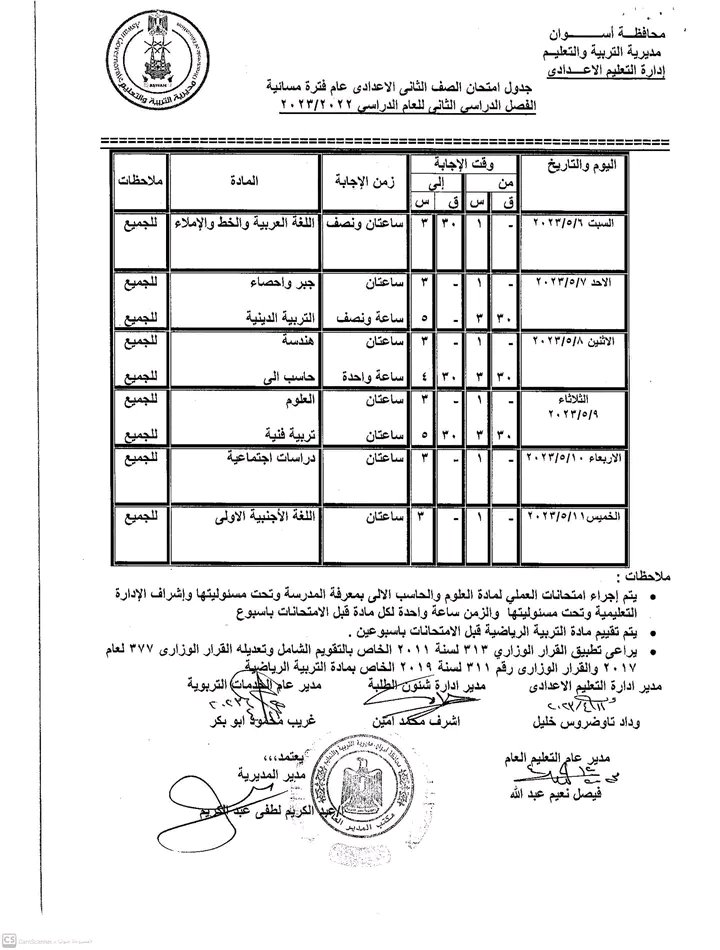 محافظة أسوان
مديرية التربية والتعليم
إدارة التعليم الاعدادى
جدول امتحان الصف الثانى الاعدادى عام فترة مسائية
الفصل الدراسي الثانى للعام الدراسي ٢٠٢٣/٢٠٢٢
اليوم والتاريخ | وقت الإجابة | زمن الإجابة | المادة | ملاحظات
من | إلى
ق | س | ق | س
السبت ٢٠٢٣/٥/٦ | - | ١ | ٣٠ | ٣ | ساعتان ونصف | اللغة العربية والخط والإملاء | للجميع
الاحد ٢٠٢٣/٥/٧ | - | ١ | - | ٣ | ساعتان | جبر واحصاء | للجميع
٣٠ | ٣ | - | ٥ | ساعة ونصف | التربية الدينية | للجميع
الاثنين ٢٠٢٣/٥/٨ | - | ١ | - | ٣ | ساعتان | هندسة | للجميع
٣٠ | ٣ | ٣٠ | ٤ | ساعة واحدة | حاسب الى | للجميع
الثلاثاء ٢٠٢٣/٥/٩ | - | ١ | - | ٣ | ساعتان | العلوم | للجميع
٣٠ | ٣ | ٣٠ | ٥ | ساعتان | تربية فنية | للجميع
الاربعاء ٢٠٢٣/٥/١٠ | - | ١ | - | ٣ | ساعتان | دراسات اجتماعية | للجميع
الخميس ٢٠٢٣/٥/١١ | - | ١ | - | ٣ | ساعتان | اللغة الأجنبية الاولى | للجميع
ملاحظات :
• يتم إجراء امتحانات العملي لمادة العلوم والحاسب الالى بمعرفة المدرسة وتحت مسئوليتها وإشراف الإدارة
التعليمية وتحت مسئوليتها والزمن ساعة واحدة لكل مادة قبل الامتحانات باسبوع
• يتم تقييم مادة التربية الرياضية قبل الامتحانات باسبوعين .
• يراعى تطبيق القرار الوزاري ٣١٣ لسنة ٢٠١١ الخاص بالتقويم الشامل وتعديله القرار الوزارى ٣٧٧ لعام
٢٠١٧ والقرار الوزارى رقم ٣١١ لسنة ٢٠١٩ الخاص بمادة التربية الرياضية
مدير ادارة التعليم الاعدادى | مدير ادارة شئون الطلبة | مدير عام الخدمات التربوية
وداد تاوضروس خليل | اشرف محمد امين | غريب محمود ابو بكر
مدير عام التعليم العام
فيصل نعيم عبد الله
يعتمد،،،
مدير المديرية
عبد الكريم لطفى عبد الكريم
مكتب المدير العام
CS CamScanner